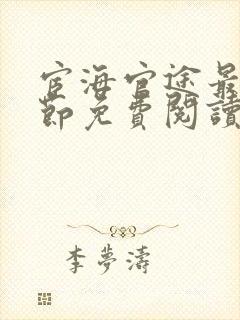 宦海官途最
節免費閱讀
李夢濤